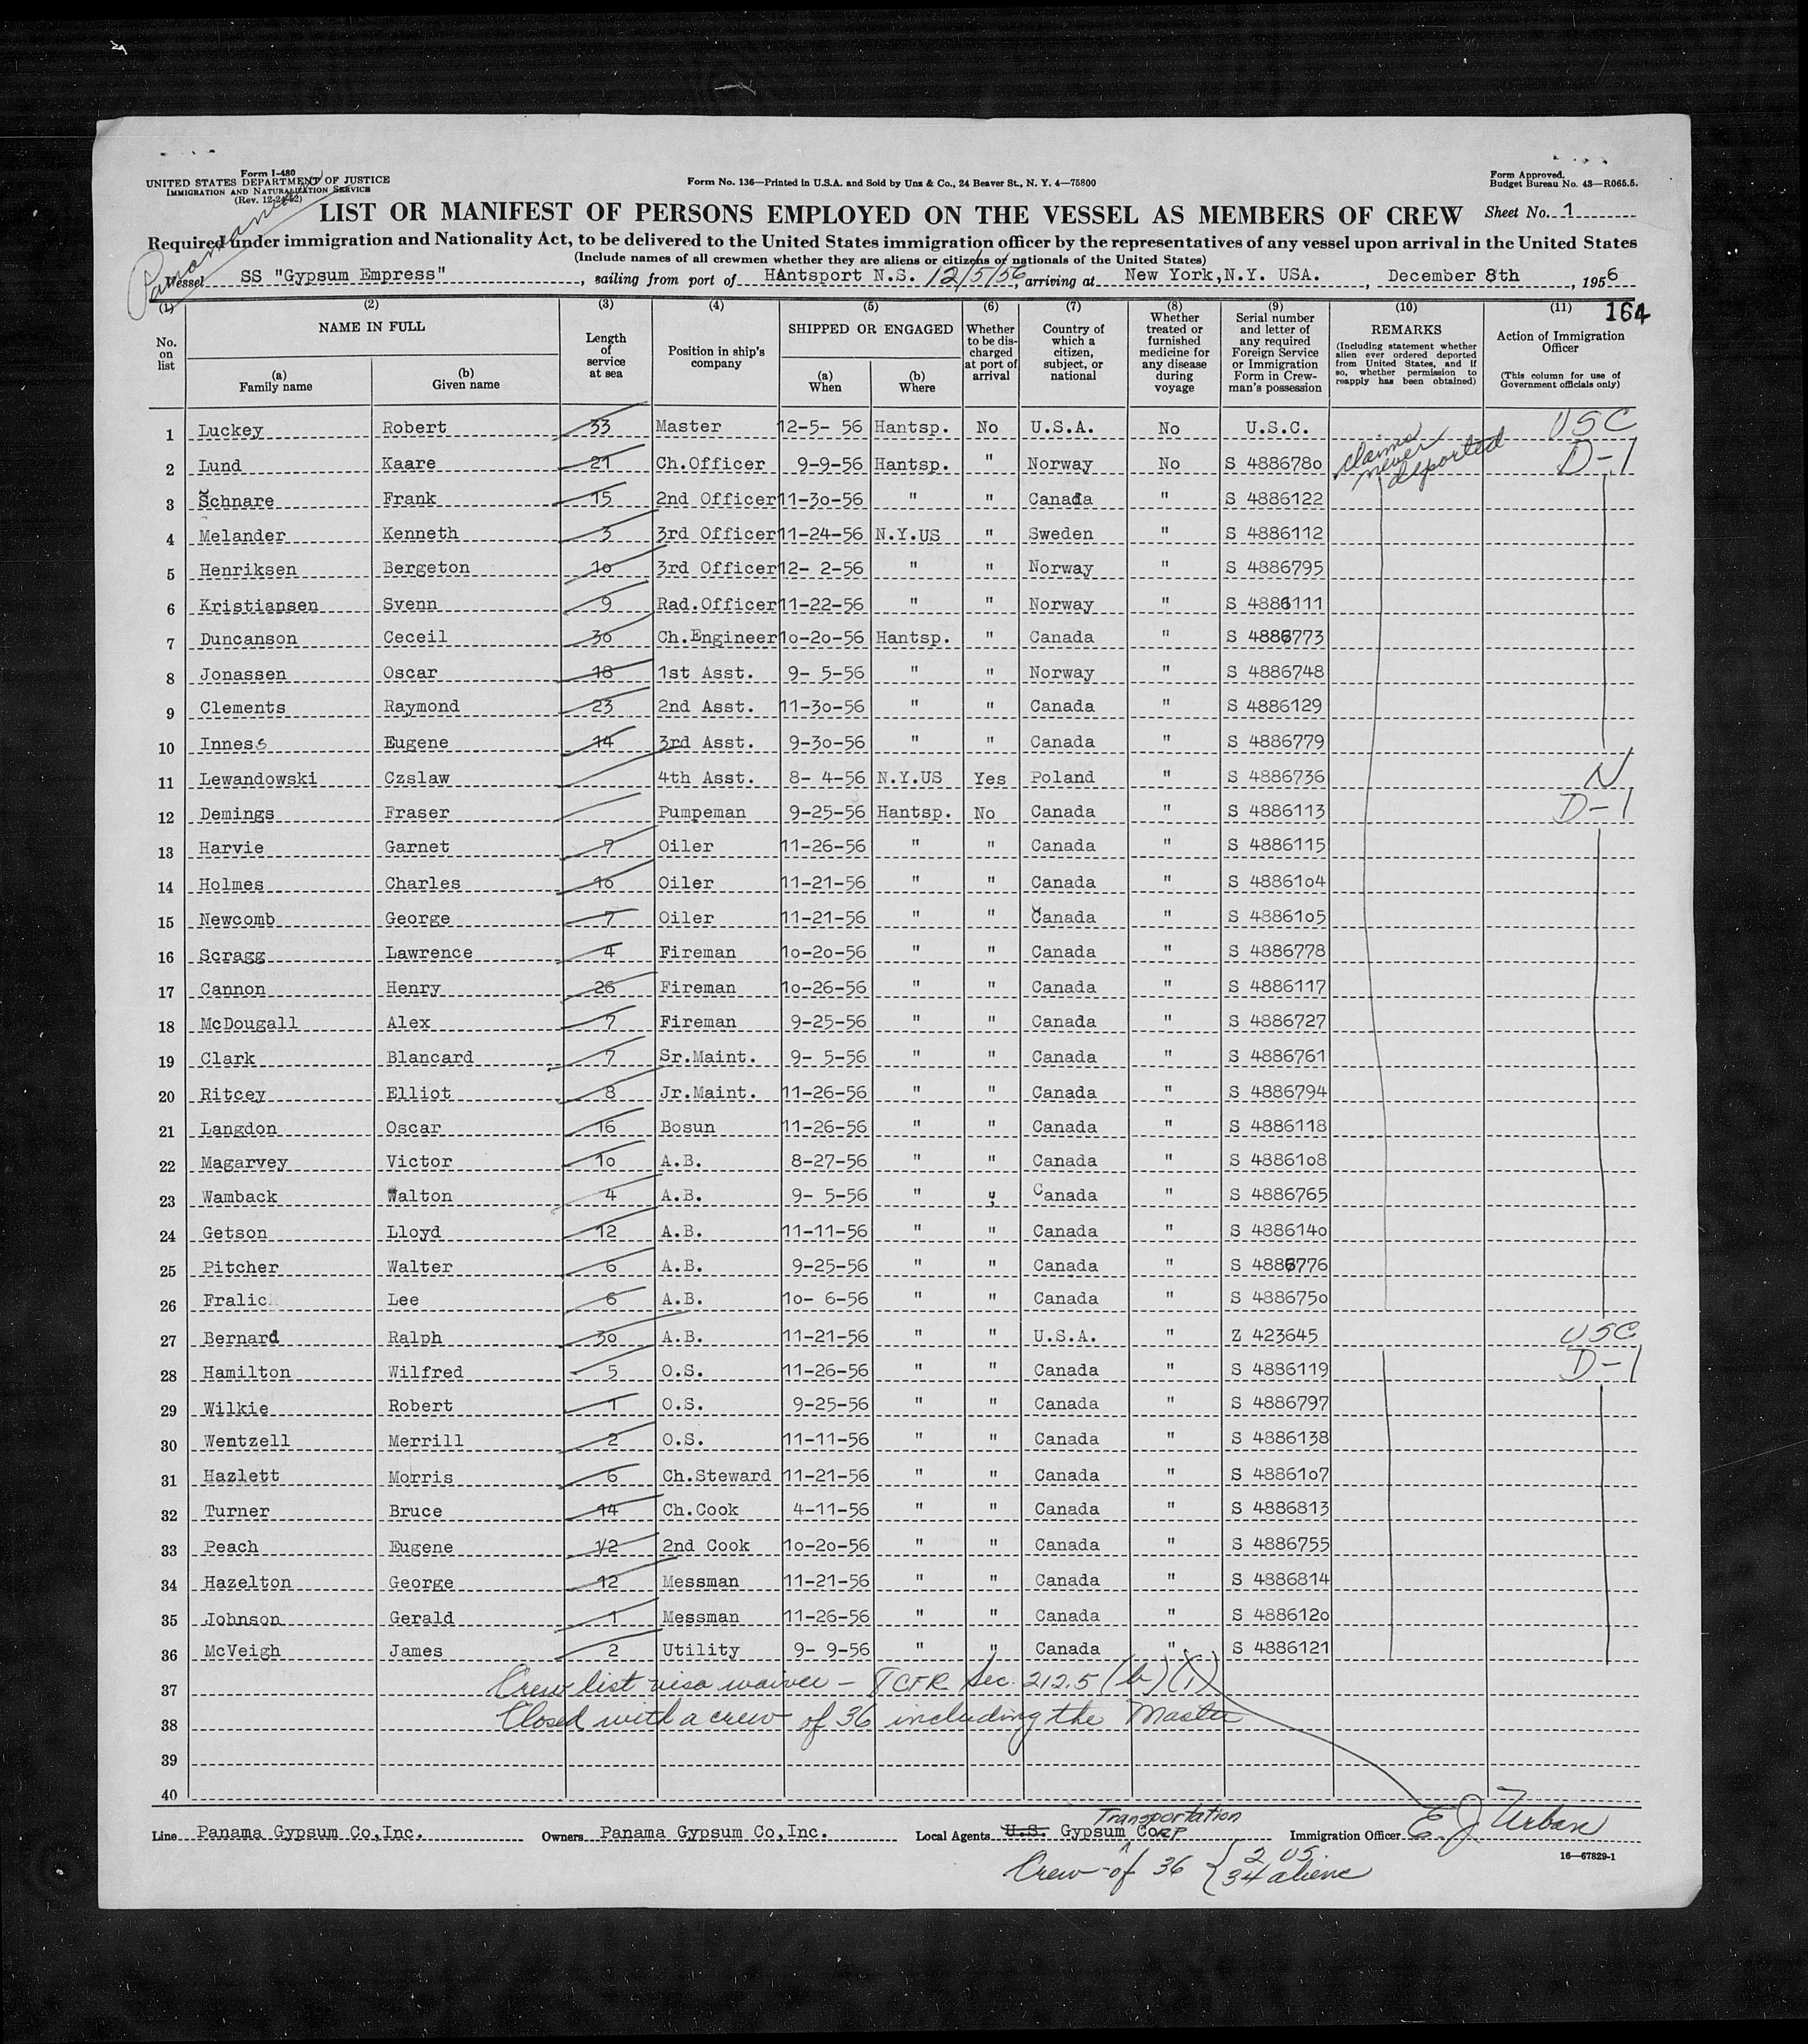 Form I-480
UNITED STATES DEPARTMENT OF JUSTICE
IMMIGRATION AND NATURALIZATION SERVICE
(Rev. 12-24-52)
Form No. 136—Printed in U.S.A. and Sold by Unz & Co., 24 Beaver St., N. Y. 4—75800
Form Approved.
Budget Bureau No. 43—R065.5.
Panamanian
LIST OR MANIFEST OF PERSONS EMPLOYED ON THE VESSEL AS MEMBERS OF CREW Sheet No. 1
Required under immigration and Nationality Act, to be delivered to the United States immigration officer by the representatives of any vessel upon arrival in the United States
(Include names of all crewmen whether they are aliens or citizens or nationals of the United States)
Vessel SS "Gypsum Empress", sailing from port of HAntsport N.S. 12/5/56, arriving at New York,N.Y. USA., December 8th, 1956
164
(1) No. on list
(2) NAME IN FULL (a) Family name (b) Given name
(3) Length of service at sea
(4) Position in ship's company
(5) SHIPPED OR ENGAGED (a) When (b) Where
(6) Whether to be discharged at port of arrival
(7) Country of which a citizen, subject, or national
(8) Whether treated or furnished medicine for any disease during voyage
(9) Serial number and letter of any required Foreign Service or Immigration Form in Crewman's possession
(10) REMARKS (Including statement whether alien ever ordered deported from United States, and if so, whether permission to reapply has been obtained)
(11) Action of Immigration Officer (This column for use of Government officials only)
1 Luckey Robert 33 Master 12-5- 56 Hantsp. No U.S.A. No U.S.C. USC
2 Lund Kaare 21 Ch.Officer 9-9-56 Hantsp. " Norway No S 4886780 claims never deported D-1
3 Schnare Frank 15 2nd Officer 11-30-56 " " Canada " S 4886122
4 Melander Kenneth 3 3rd Officer 11-24-56 N.Y.US " Sweden " S 4886112
5 Henriksen Bergeton 10 3rd Officer 12- 2-56 " " Norway " S 4886795
6 Kristiansen Svenn 9 Rad.Officer 11-22-56 " " Norway " S 4886111
7 Duncanson Ceceil 30 Ch.Engineer 10-20-56 Hantsp. " Canada " S 4886773
8 Jonassen Oscar 18 1st Asst. 9- 5-56 " " Norway " S 4886748
9 Clements Raymond 23 2nd Asst. 11-30-56 " " Canada " S 4886129
10 Inness Eugene 14 3rd Asst. 9-30-56 " " Canada " S 4886779
11 Lewandowski Czslaw 4th Asst. 8- 4-56 N.Y.US Yes Poland " S 4886736 N
12 Demings Fraser Pumpeman 9-25-56 Hantsp. No Canada " S 4886113 D-1
13 Harvie Garnet 7 Oiler 11-26-56 " " Canada " S 4886115
14 Holmes Charles 10 Oiler 11-21-56 " " Canada " S 4886104
15 Newcomb George 7 Oiler 11-21-56 " " Canada " S 4886105
16 Scragg Lawrence 4 Fireman 10-20-56 " " Canada " S 4886778
17 Cannon Henry 26 Fireman 10-26-56 " " Canada " S 4886117
18 McDougall Alex 7 Fireman 9-25-56 " " Canada " S 4886727
19 Clark Blancard 7 Sr.Maint. 9- 5-56 " " Canada " S 4886761
20 Ritcey Elliot 8 Jr.Maint. 11-26-56 " " Canada " S 4886794
21 Langdon Oscar 16 Bosun 11-26-56 " " Canada " S 4886118
22 Magarvey Victor 10 A.B. 8-27-56 " " Canada " S 4886108
23 Wamback Walton 4 A.B. 9- 5-56 " " Canada " S 4886765
24 Getson Lloyd 12 A.B. 11-11-56 " " Canada " S 4886140
25 Pitcher Walter 6 A.B. 9-25-56 " " Canada " S 4886776
26 Fralick Lee 6 A.B. 10- 6-56 " " Canada " S 4886750
27 Bernard Ralph 30 A.B. 11-21-56 " " U.S.A. " Z 423645 USC
28 Hamilton Wilfred 5 O.S. 11-26-56 " " Canada " S 4886119 D-1
29 Wilkie Robert 1 O.S. 9-25-56 " " Canada " S 4886797
30 Wentzell Merrill 2 O.S. 11-11-56 " " Canada " S 4886138
31 Hazlett Morris 6 Ch.Steward 11-21-56 " " Canada " S 4886107
32 Turner Bruce 14 Ch.Cook 4-11-56 " " Canada " S 4886813
33 Peach Eugene 1/2 2nd Cook 10-20-56 " " Canada " S 4886755
34 Hazelton George 12 Messman 11-21-56 " " Canada " S 4886814
35 Johnson Gerald 1 Messman 11-26-56 " " Canada " S 4886120
36 McVeigh James 2 Utility 9- 9-56 " " Canada " S 4886121
37 Crew list visa waiver - CFR Sec. 212.5 (b)(1)
38 Closed with a crew of 36 including the Master
39
40
Line Panama Gypsum Co,Inc. Owners Panama Gypsum Co,Inc. Local Agents U.S. Gypsum Transportation CoRP Immigration Officer E. J. Urban
16—67829-1
Crew of 36 { 2 US
34 aliens